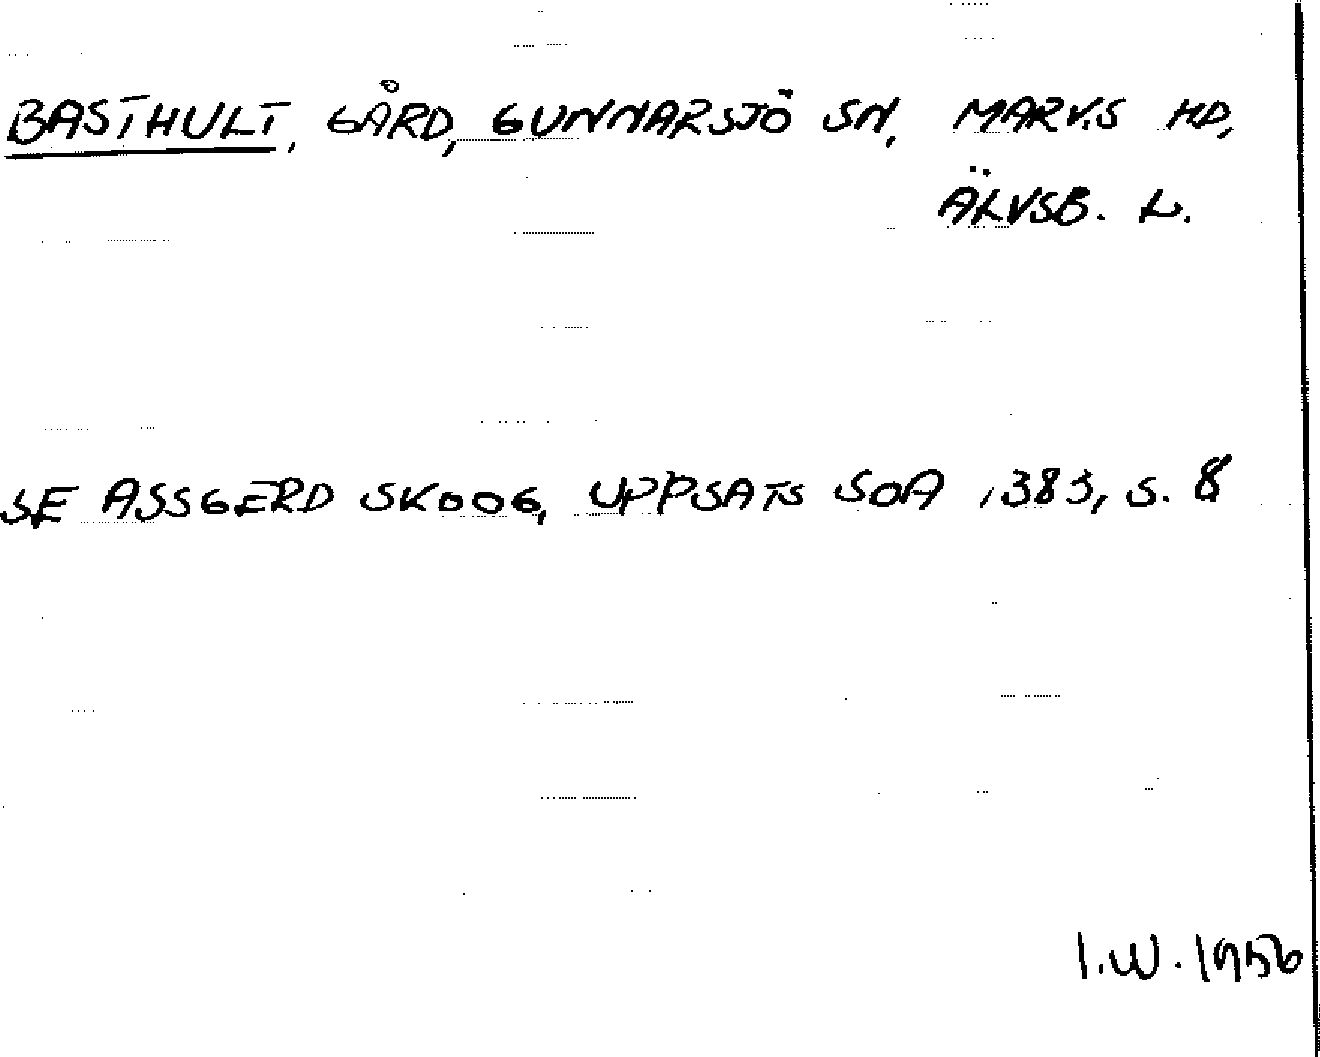 BASTHULT, GÅRD, GUNNARSJÖ SN, MARKS HD,
ÄLVSB. L.
SE ASSGERD SKOOG, UPPSATS SOA 1383, S. 8
I.W. 1956